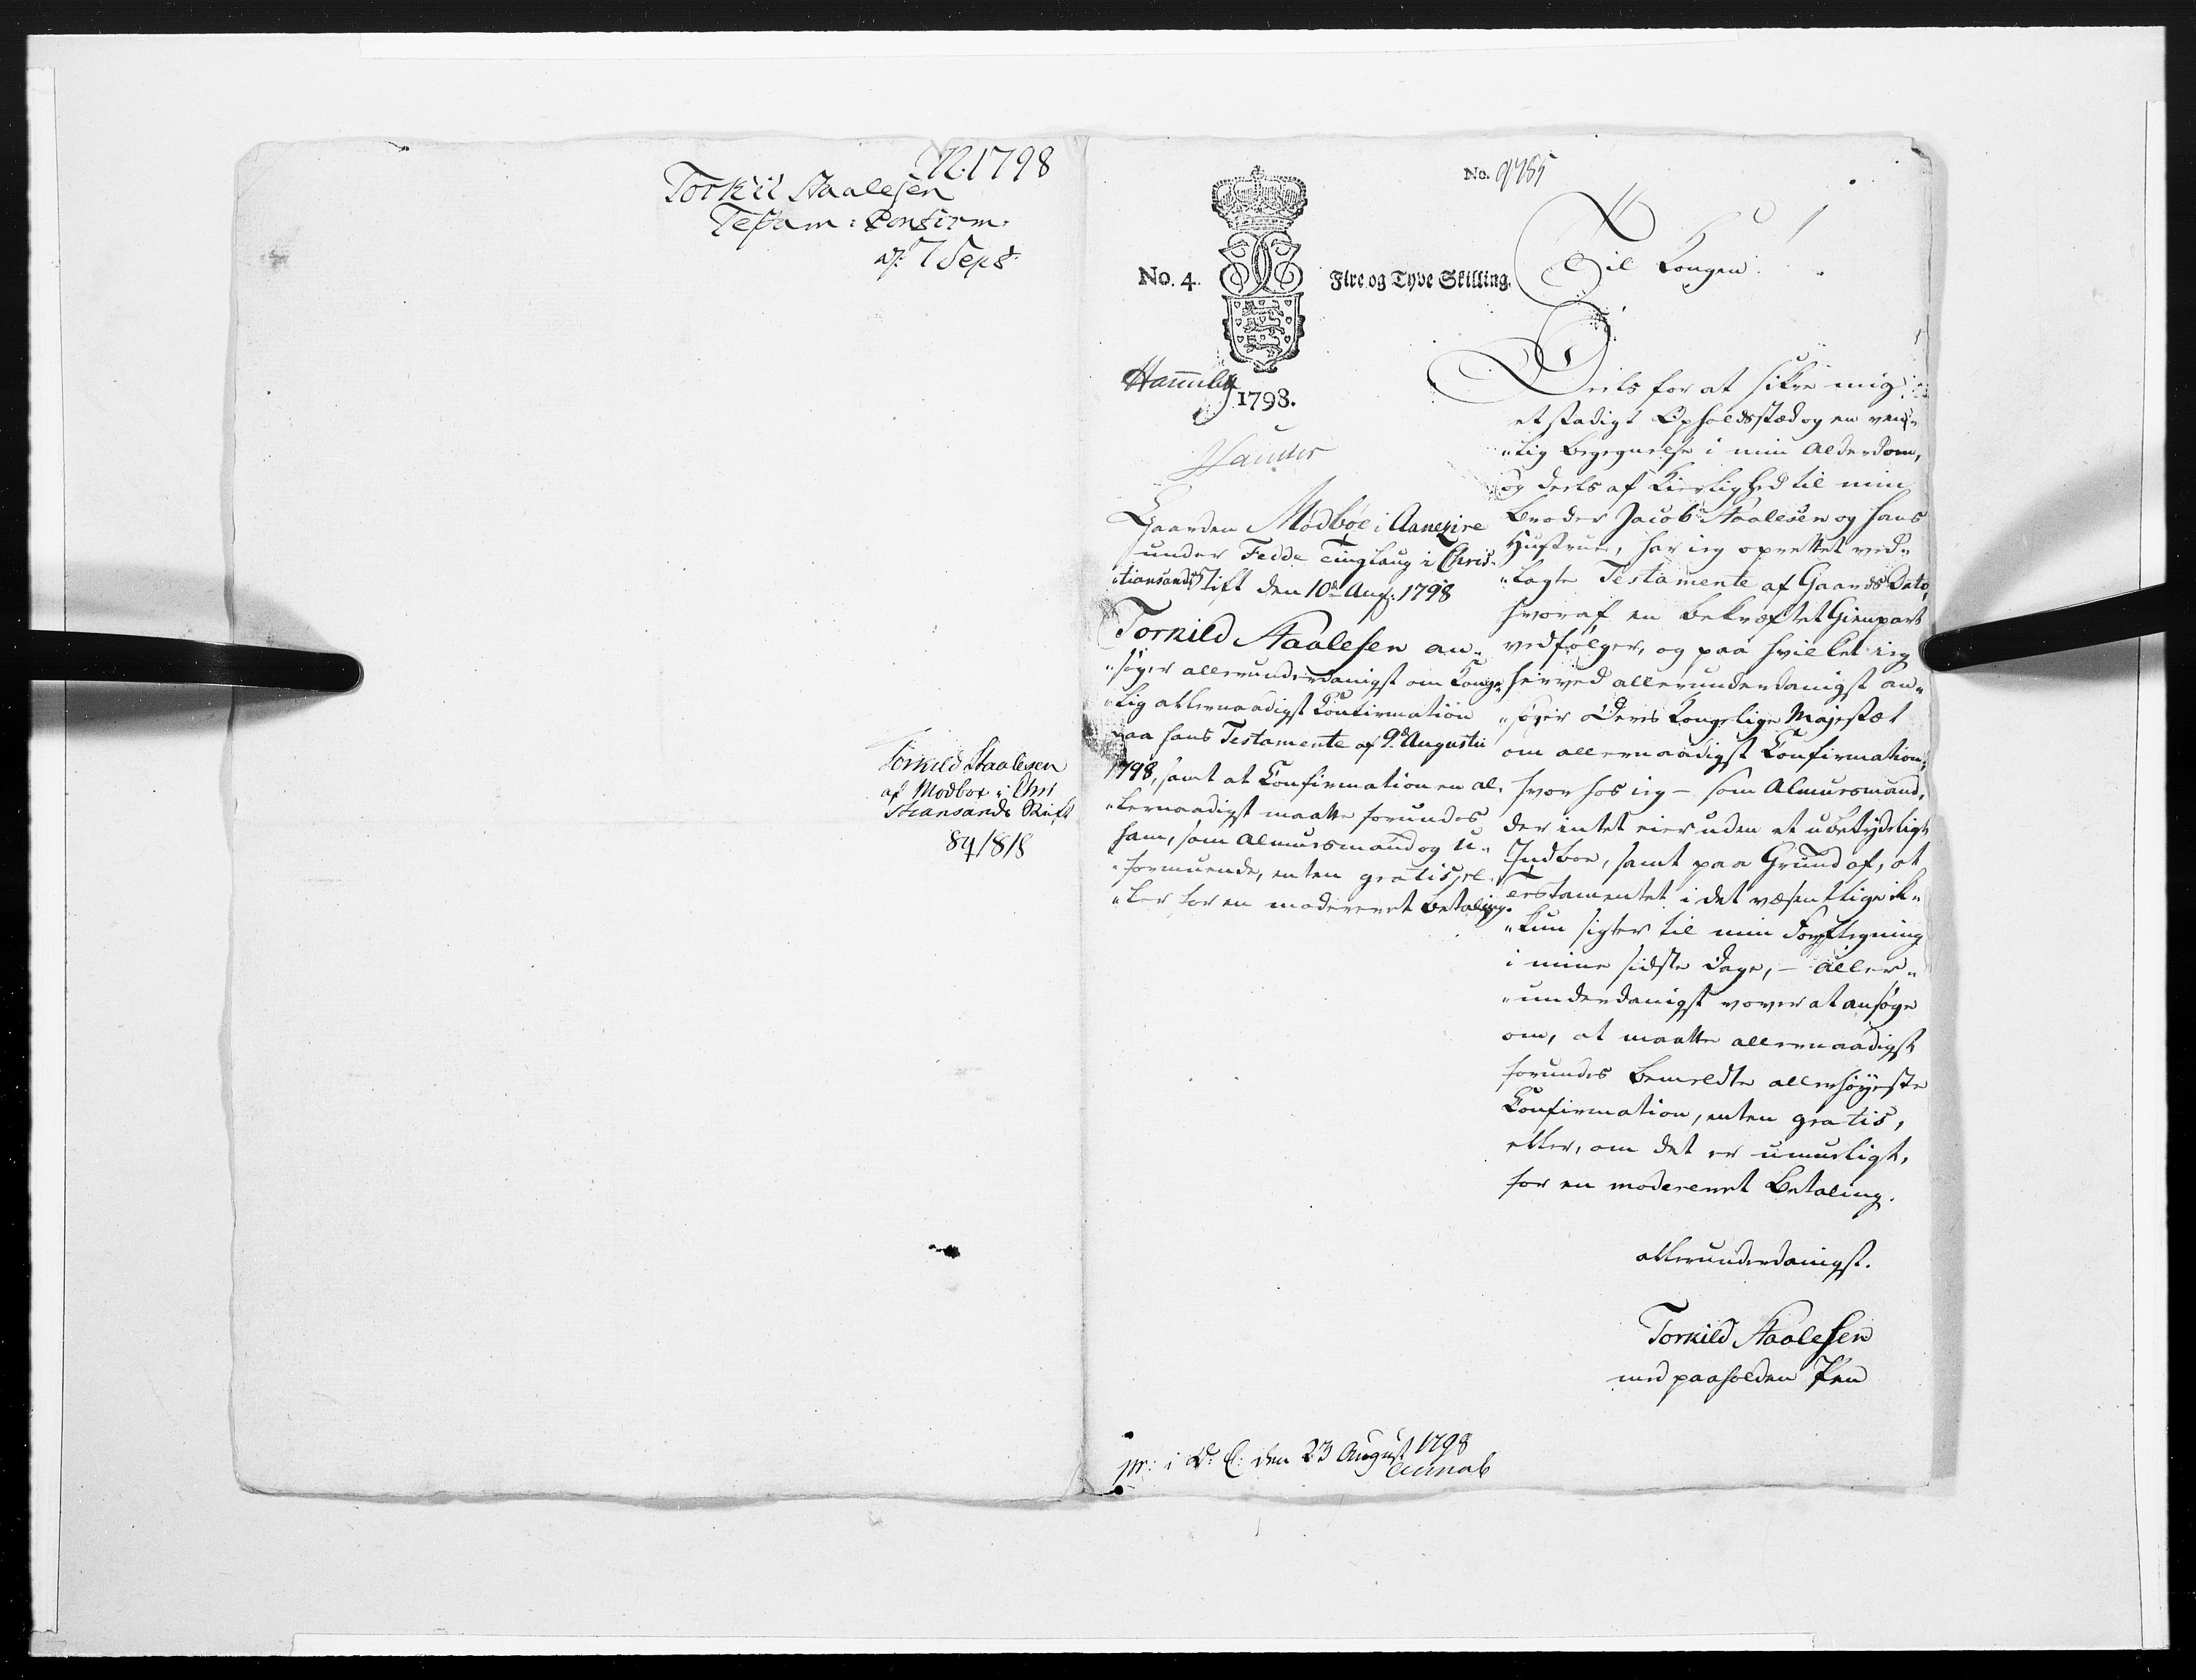 N. 1798
Torkil Staalesen
Testam: Confirm.
af: 7 Sept
Torkild Staalesen
af Modboe i Chri
stiansands Stift
84/8/8
No. 4.
Fire og Tyve Skilling.
1798.
Gaarden Mødbøe i Aanezire
under Fedde Tinglaug i Chris-
"tiansands Stift den 10de Aug: 1798
Torkild Staalesen an-
"søger allerunderdanigst om Konge-
"lig allernaadigst Confirmation
paa hans Testamente af 9de Augustii
1798, samt at Confirmationen al-
"lernaadigst maatte forundes
ham, som Almuesmand og u-
"formuende, enten gratis, el-
"ler for en modereret Betaling.
No. 9785
Til Kongen!
Deels for at sikre mig
et stadigt Opholdsstæd og en ven-
"lig Begegnelse i min Alderdom,
og deels af Kierlighed til min
Broder Jacob Staalesen og hans
Hustrue, har ieg oprettet ved-
"lagte Testamente af Gaards Dato,
hvoraf en bekræftet Gienpart
vedfølger, og paa hvilket ieg
herved allerunderdanigst an-
"søger Deres Kongelige Majestæt
om allernaadigst Confirmation;
hvorhos ieg – som Almuesmand,
der intet eier uden et ubetydeligt
Indboe, samt paa Grund af, at
Testamentet i det væsentlige ik-
"kun sigter til min Forpflegning
i mine sidste Dage, – aller-
"underdanigst vover at ansøge
om, at maatte allernaadigst
forundes bemeldte allerhøyeste
Confirmation, enten gratis,
eller, om det er umueligt,
for en modereret Betaling.
allerunderdanigst.
Torkild Staalesen
med paaholden Pen
pr: i D: C: den 23 August 1798